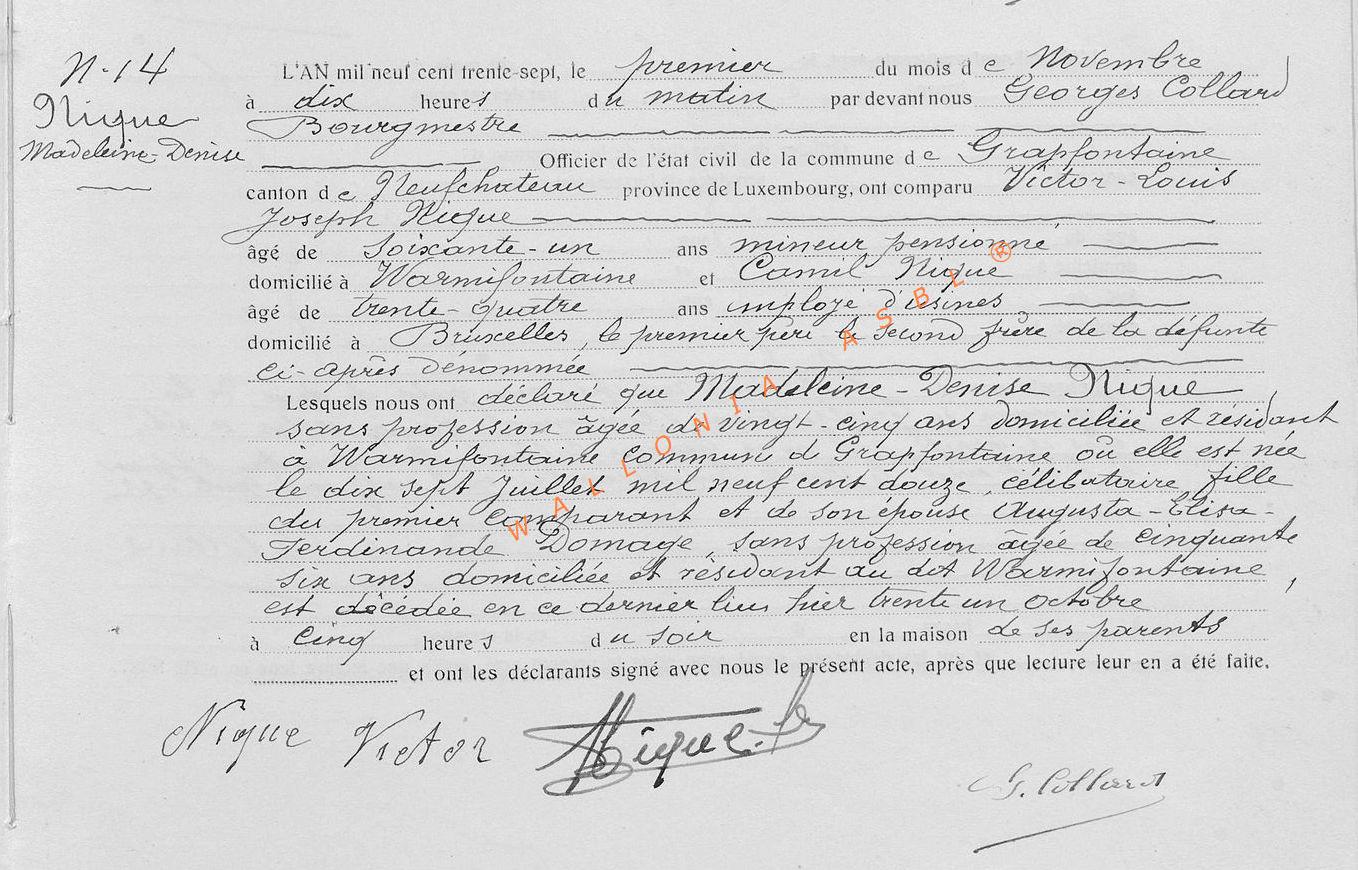 N. 14
Nique
Madeleine-Denise
L'AN mil neuf cent trente-sept, le premier du mois de Novembre
à dix heures du matin par devant nous Georges Collard
Bourgmestre
Officier de l'état civil de la commune de Grapfontaine
canton de Neufchateau province de Luxembourg, ont comparu Victor-Louis
Joseph Nique
âgé de soixante-un ans mineur pensionné
domicilié à Warmifontaine et Camil Nique
âgé de trente-quatre ans employé d'usines
domicilié à Bruxelles, le premier père le second frère de la défunte
ci-après dénommée
Lesquels nous ont déclaré que Madeleine-Denise Nique
sans profession âgée de vingt-cinq ans domiciliée et résidant
à Warmifontaine commune de Grapfontaine où elle est née
le dix sept Juillet mil neuf cent douze, célibataire fille
du premier comparant et de son épouse Augusta-Elisa-
Ferdinande Domage, sans profession âgée de cinquante
six ans domiciliée et résidant au dit Warmifontaine,
est décédée en ce dernier lieu hier trente un octobre
à cinq heures du soir en la maison de ses parents
et ont les déclarants signé avec nous le présent acte, après que lecture leur en a été faite.
Nique Victor Nique
G. Collard
WALLONIA ASBL ®